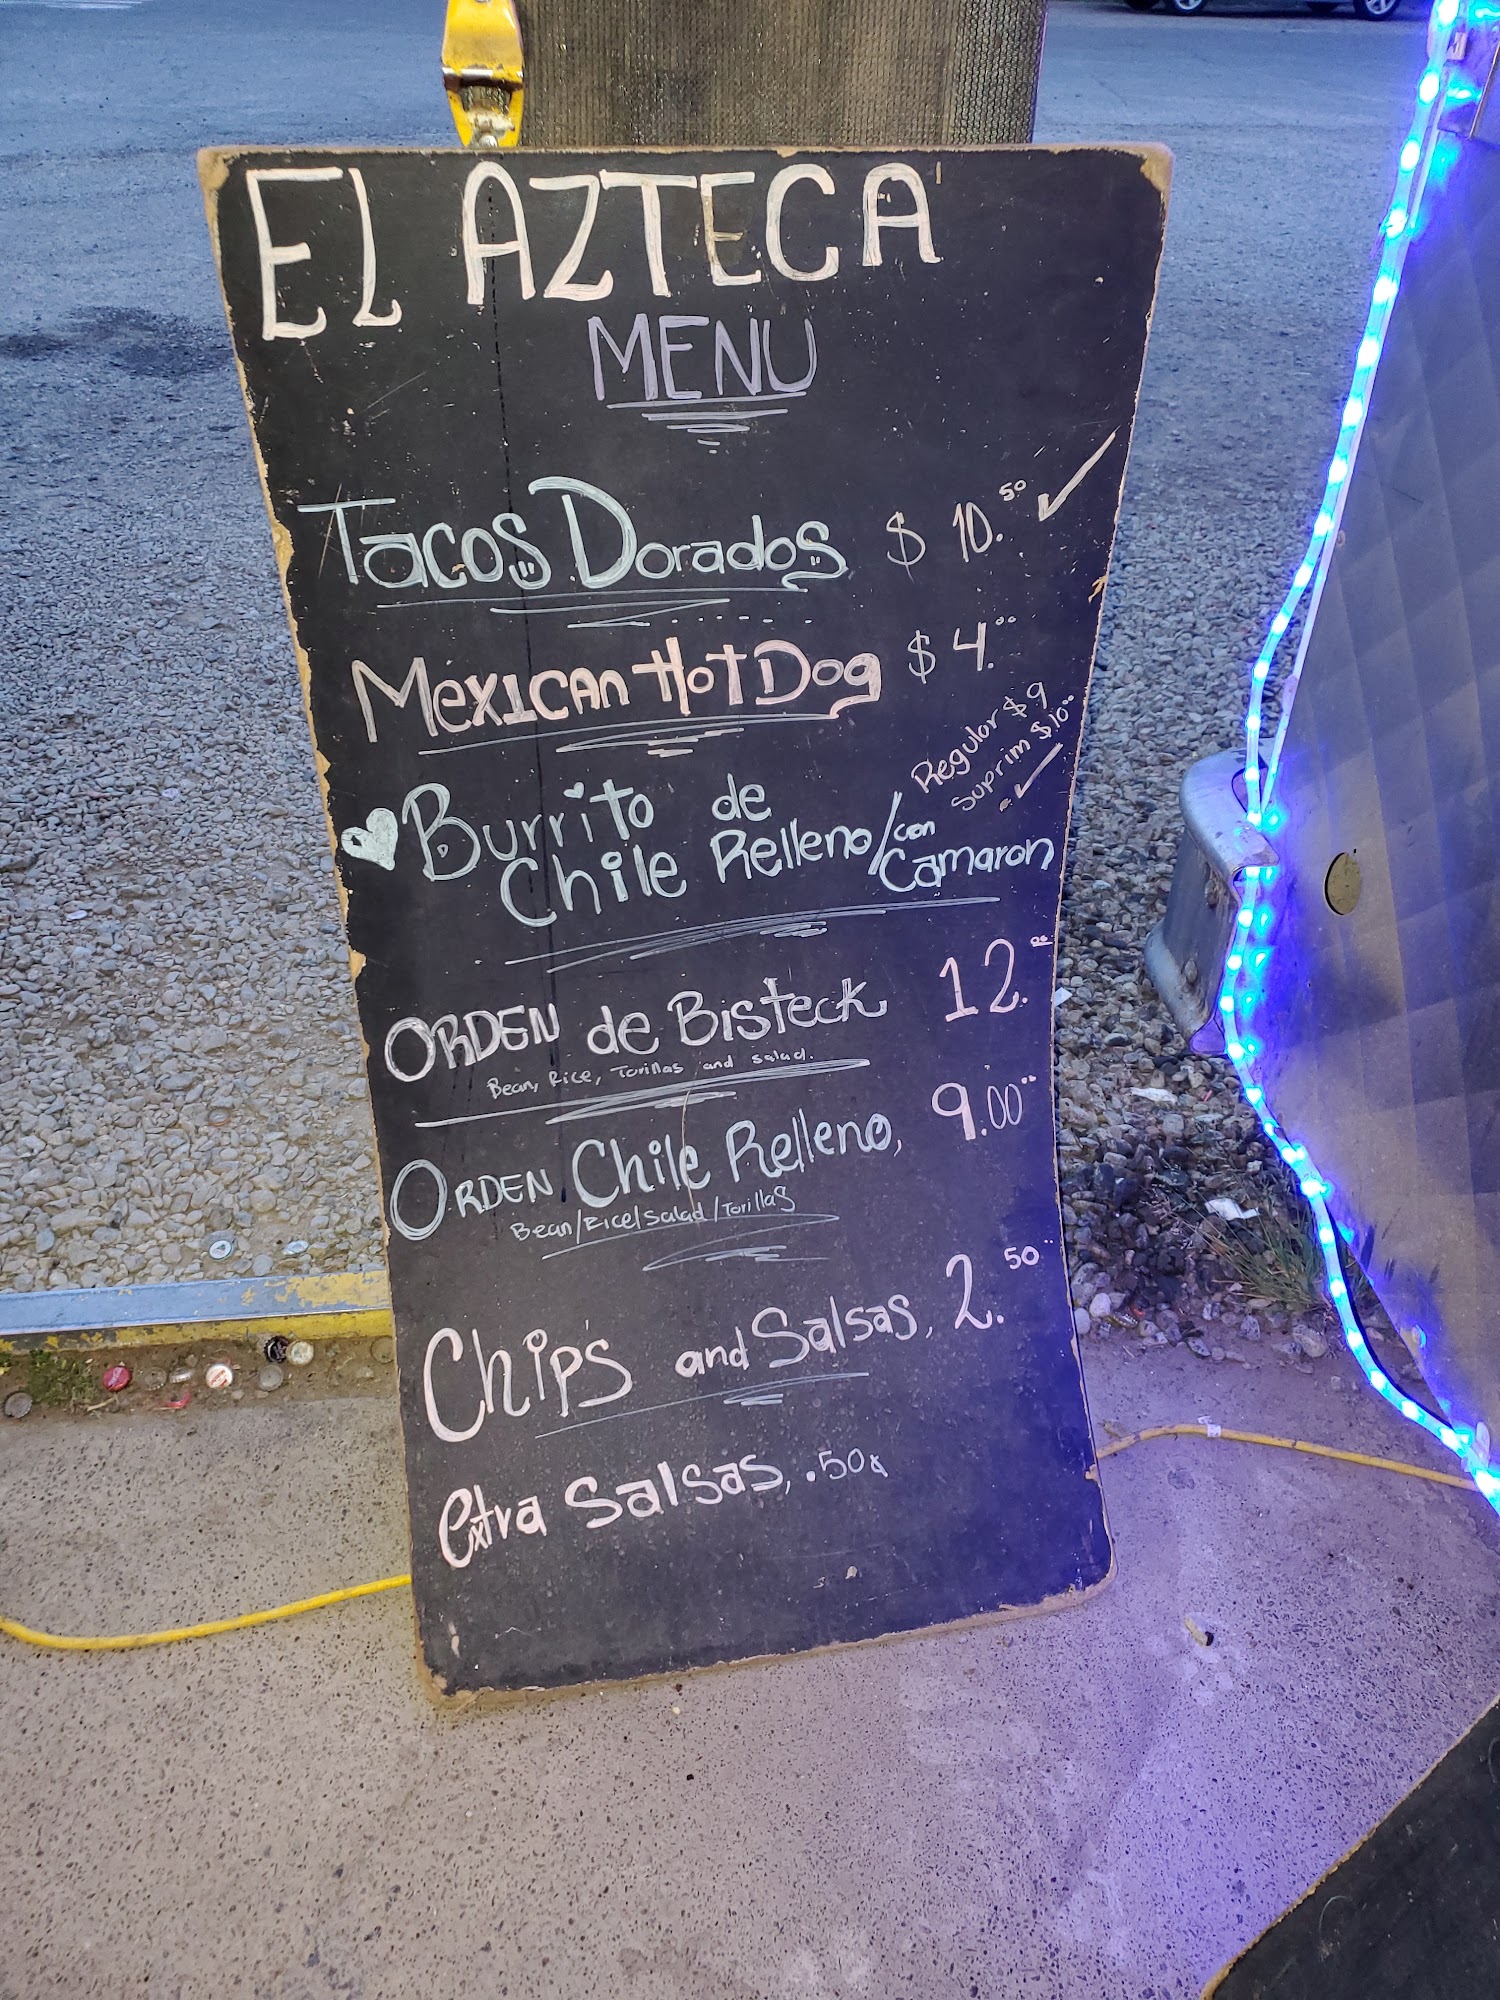 EL AZTECA
MENU
Tacos Dorados $ 10.50
Mexican Hot Dog $ 4.00
Regular $9
Suprim $10.00
Burrito de
Chile Relleno/con
Camaron
ORDEN de Bisteck 12.00
Bean, Rice, Torillas and salad.
ORDEN Chile Relleno, 9.00
Bean/Rice/salad/Torillas
Chip's and Salsas, 2.50
extra Salsas, .50¢